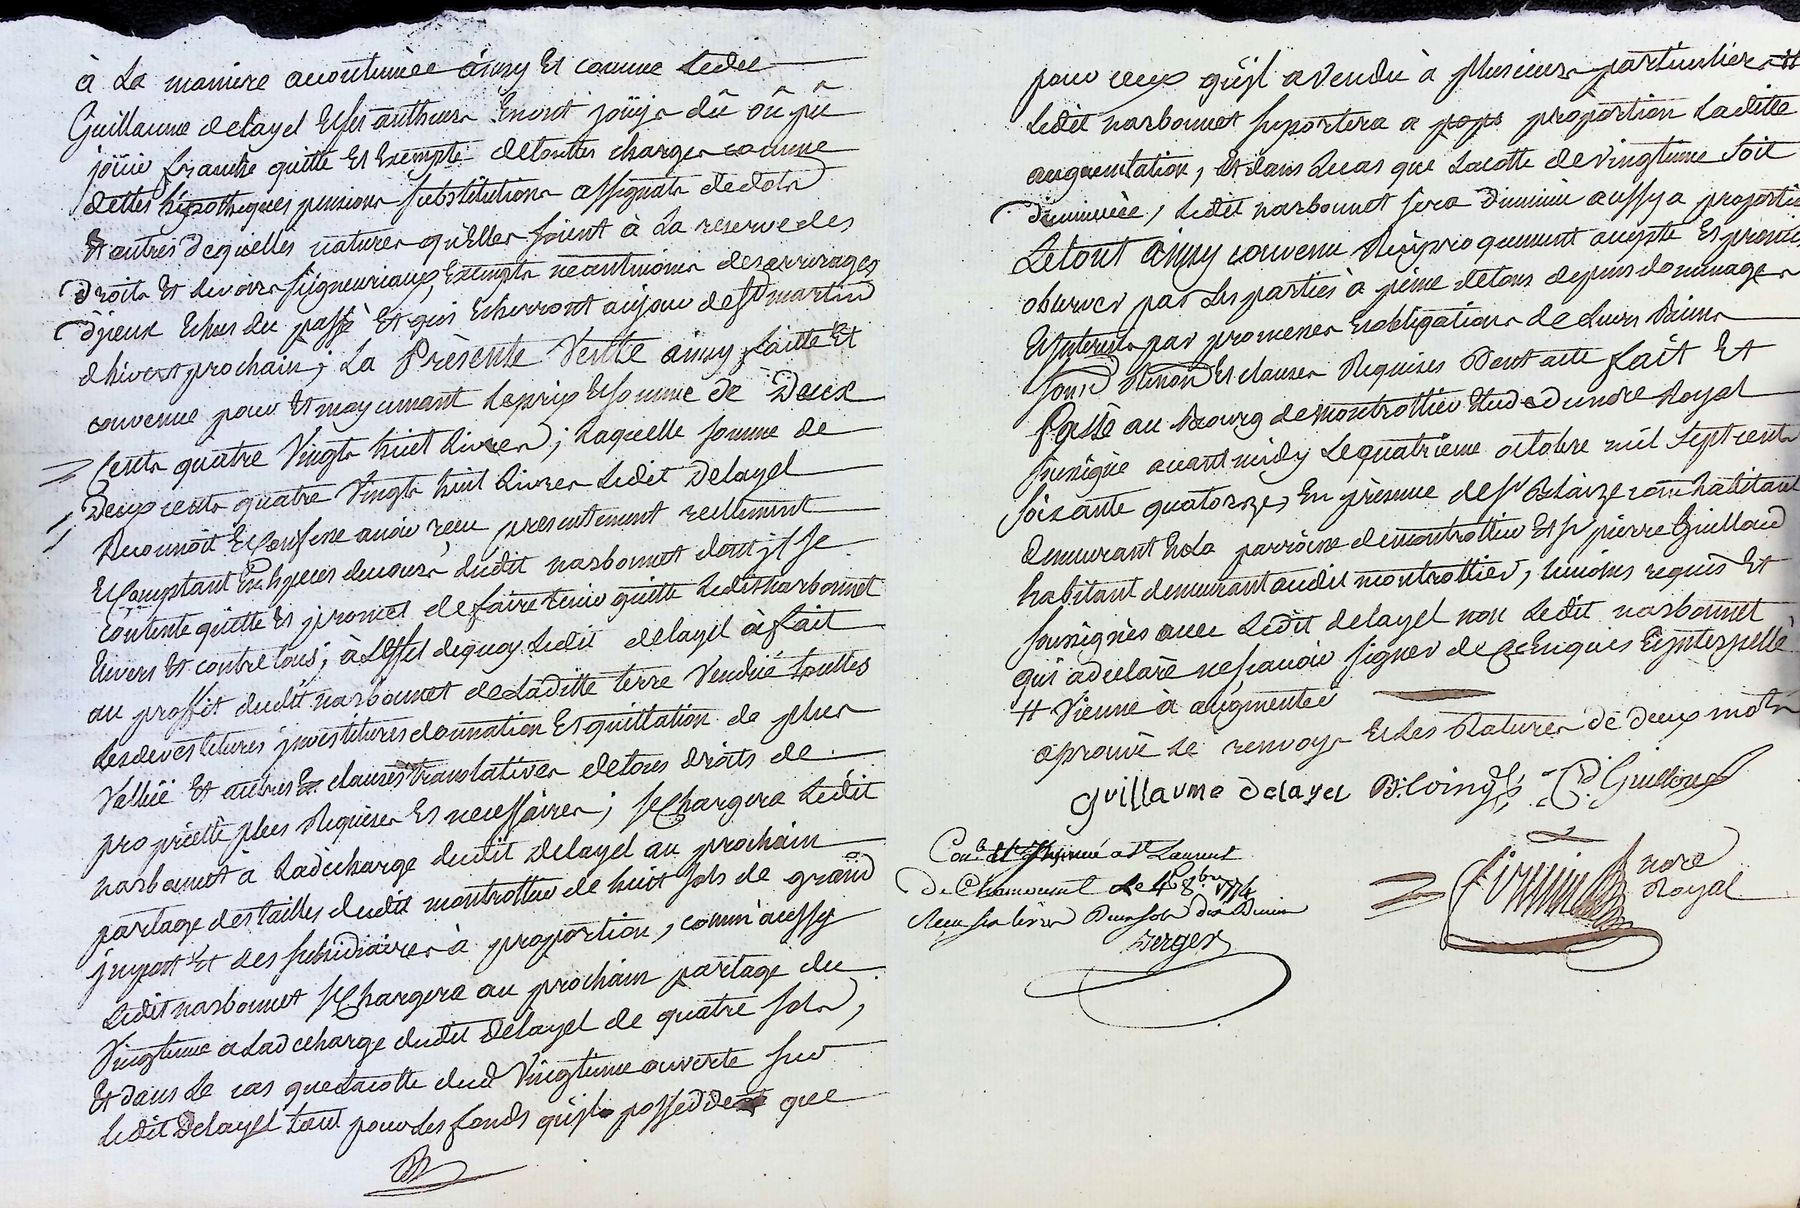 à La maniere accoutumèe ainsy Et comme Ledit
Guillaume delayel Et ses autheurs En ont joüÿs dû où pû
joüir franche quitte Et Exempte de touttes charges comme
dettes hipotheques pensions substitutions assignats de dots
Et autres de quelles natures qu'Elles soient à La reserve des
droits Et devoirs seigneuriaux, Exempts neantmoins des arrerages
d'jceux Echus du passè Et qui Echerront au jour de St martin
d'hivert prochain; La Prèsente Vente ainsy faitte Et
convenue pour Et moyennant Le prix Et somme de Deux
Cents quatre Vingts huit Livres; Laquelle somme de
Deux cents quatre Vingts huit Livres Ledit Delayel
Reconnoit Et Confesse avoir reçu presentement reellement
Et Comptant En Especes de cours dudit narbonnet dont jl se
contente quitte Et promet de faire tenir quitte Ledit narbonnet
Envers Et contre tous; à L'effet de quoy Ledit delayel à fait
au proffit dudit narbonnet de Laditte terre Venduë touttes
Les devestitures jnvestitures donnation Et quittation de plus
Vallüe Et autres clauses translatives de tous droits de
propriettè plus Requises Et necessaires; se Chargera Ledit
narbonnet à La dècharge dudit Delayel au prochain
partage des tailles dudit montrottier de huit sols de grand
jmpost Et des subsidiaires à proportion, comm'aussy
Ledit narbonnet se Chargera au prochain partage du
Vingtieme a La dècharge dudit Delayel de quatre sols;
Et dans Le cas que La cotte dud Vingtieme ouverte sur
Ledit Delayel tant pour Les fonds qu'jl possedde que
pour ceux qu'jl a vendu à plusieurs particuliers #
Ledit narbonnet suportera a proportion Laditte
augmentation, Et dans Le cas que La cotte de Vingtieme soit
diminuèe, Ledit narbonnet sera Diminué aussy a proporti
Le tout ainsy convenu Reciproquement accepté Et promis
observer par Les parties à peine de tous depens dommages
Et jnterests par promesses Et obligations de Leurs Biens
soum Renon Et clauses Requises Dont acte fait Et
Passé au Bourg de montrottier Etude du nore Royal
soussigné avant midy Le quatrieme octobre mil sept cents
soixante quatorze, En presence de Sr habitant
demeurant En La parroisse de montrottier Et Sr pierre Guilloud
habitant demeurant audit montrottier, tèmoins requis Et
soussignès avec Ledit delayel non Ledit narbonnet
qui a declarè ne sçavoir signer de Ce Enquis Et jnterpellè
# Vienne à augmenter
aprouvè Le renvoy Et Les Ratures de deux mots
Guillaume Delayel Guilloud
nore
Royal
Conlé Et a St Laurent
De Chamousset Le 4 8bre 1774
Reçu six livres Deux sols dix Deniers
Berger